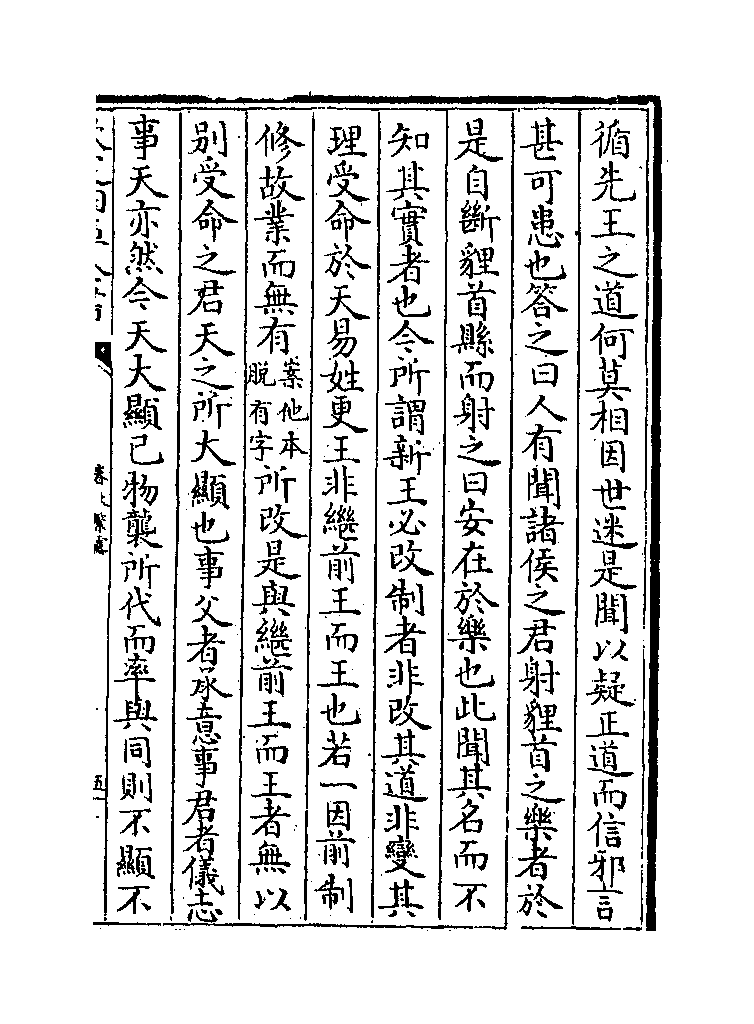 循先王之道何莫相因世迷是聞以疑正道而信邪言
甚可患也答之曰人有聞諸侯之君射貍首之樂者於
是自斷貍首縣而射之曰安在於樂也此聞其名而不
知其實者也今所謂新王必改制者非改其道非變其
理受命於天易姓更王非繼前王而王也若一因前制
修故業而無有案他本脱有字所改是與繼前王而王者無以
别受命之君天之所大顯也事父者承意事君者儀志
事天亦然今天大顯已物襲所代而率與同則不顯不
春秋繁露
五